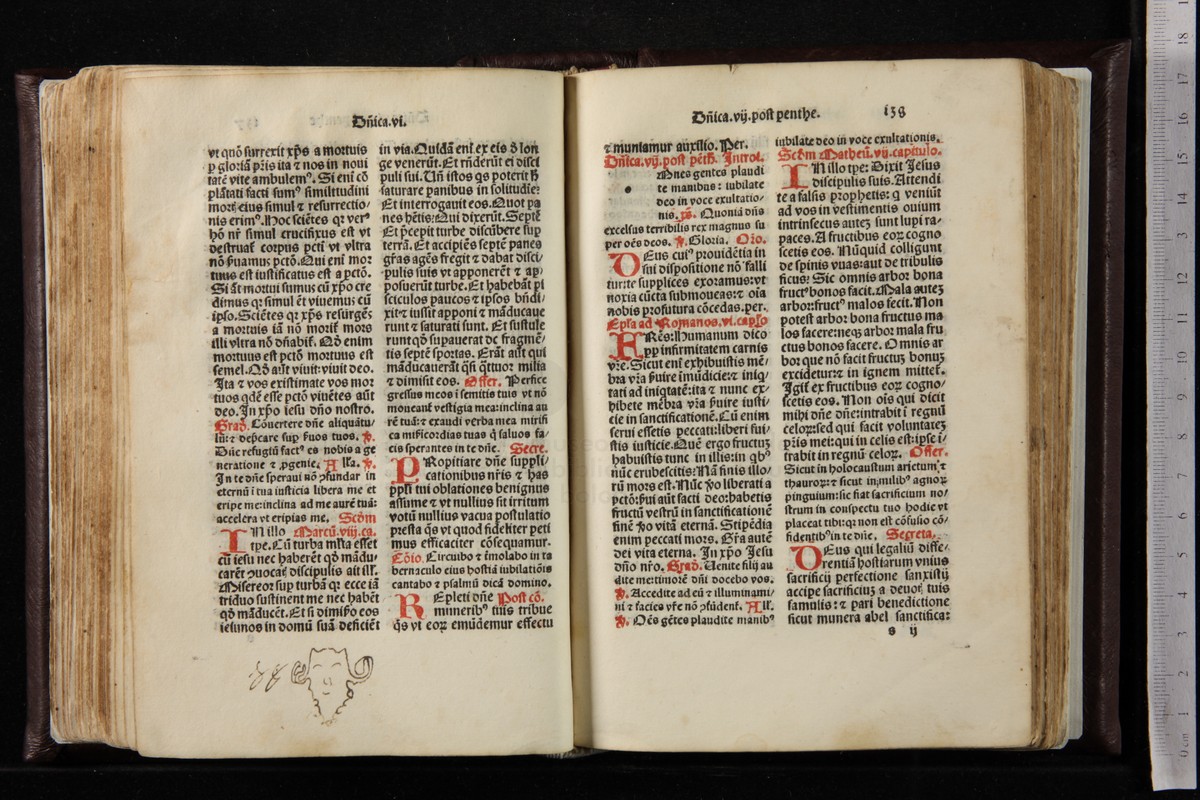 Dñica.vi.
vt quõ surrexit xp̃s a mortuis
ꝑ gloriã pr̃is ita ⁊ nos in noui
tatẽ vite ambulemꝰ. Si eni cõ
plãtati facti sumꝰ similitudini
mortꝭ eius simul ⁊ resurrectio⸗
nis erimꝰ. Hoc sciẽtes qꝛ verꝰ
hõ nr̃ simul crucifixus est vt
destruat̃ corpus pctĩ vt vltra
nõ ẜuamus pctõ. Qui enĩ mor
tuus est iustificatus est a pctõ.
Si aũt mortui sumus cũ xp̃o cre
dimus qꝛ simul et viuemus cũ
ipso. Sciẽtes qꝛ xp̃s resurgẽs
a mortuis iã nõ morit̃ mors
illi vltra nõ dñabit̃. Qõ enim
mortuus est pctõ mortuus est
semel. Qõ aũt viuit: viuit deo.
Ita ⁊ vos existimate vos mor
tuos qdẽ esse pctõ viuẽtes aũt
deo. In xp̃o iesu dño nostro.
Grad̃. Cõuertere dñe aliquãtu⸗
lũ: ⁊ dep̃care suꝑ ẜuos tuos. ℣.
Dñe refugiũ factꝰ es nobis a ge
neratione ⁊ ꝓgenie. All'a. ℣.
In te dñe speraui nõ ꝯfundar in
eternũ i tua iusticia libera me et
eripe me: inclina ad me aurẽ tuã:
accelera vt eripias me. Scd̃m
IN illo Marcũ. viij. ca.
tp̃e. Cũ turba ml̃ta esset
cũ iesu nec haberẽt qõ mãdu⸗
carẽt ꝯuocatꝭ discipulis ait ill'.
Misereor suꝑ turbã qꝛ ecce iã
triduo sustinent me nec habẽt
qõ mãducẽt. Et si dimiẜo eos
ieiunos in domũ suã deficiẽt
in via. Quidã enĩ ex eis d̃ lon
ge venerũt. Et rñderũt ei disci
puli sui. Un̄ istos qs poterit h̃
saturare panibus in solitudie:
Et interrogauit eos. Quot pa
nes hẽtis: Qui dixerũt. Septẽ
Et p̃cepit turbe discũbere suꝑ
terrã. Et accipiẽs septẽ panes
gr̃as agẽs fregit ⁊ dabat disci⸗
pulis suis vt apponerẽt ⁊ ap⸗
posuerũt turbe. Et habebãt pi
sciculos paucos ⁊ ipsos bñdi⸗
xit ⁊ iussit apponi ⁊ mãducaue
runt ⁊ saturati sunt. Et sustule
runt qõ suꝑauerat de fragmẽ⸗
tis septẽ sportas. Erãt aũt qui
mãducauerãt q̃si q̃ttuor milia
⁊ dimisit eos. Offer. Perfice
gressus meos i semitis tuis vt nõ
moueant̃ vestigia mea: inclina au
rẽ tuã: ⁊ exaudi verba mea mirifi
ca mĩficordias tuas q̃ saluos fa⸗
cis sperantes in te dñe. Secre.
PRopitiare dñe suppli⸗
cationibus nr̃is ⁊ has
pp̃li tui oblationes benignus
assume ⁊ vt nullius sit irritum
votũ nullius vacua postulatio
presta q̃s vt quod fideliter peti
mus efficaciter cõsequamur.
Cõio. Circuibo ⁊ ĩmolabo in ta
bernaculo eius hostiã iubilatiõis
cantabo ⁊ psalmũ dicã domino.
REpleti dñe Post cõ.
muneribꝰ tuis tribue
q̃s vt eoꝝ emũdemur effectu
Dñica. vij. post penthe. 138
⁊ muniamur auxilio. Per.
Dñica. vij. post pẽth. Introi.
OMnes gentes plaudi
te manibus: iubilate
deo in voce exultatio⸗
nis. ps̃. Quoniã dñs
excelsus terribilis rex magnus su
per oẽs deos. ℣. Gloria. Orõ.
DEus cuiꝰ prouidẽtia in
sui dispositione nõ falli
tur: te supplices exoramus: vt
noxia cũcta submoueas: ⁊ oĩa
nobis profutura cõcedas. per.
Epl'a ad Romanos. vi. capl'o
FRẽs: Humanum dico
ꝓpꝑ infirmitatem carnis
vr̃e. Sicut enĩ exhibuistis mẽ⸗
bra vr̃a ẜuire ĩmũdicie: ⁊ iniq⸗
tati ad iniqtatẽ: ita ⁊ nunc ex⸗
hibete mẽbra vr̃a ẜuire iusti⸗
cie in sanctificationẽ. Cũ enim
serui essetis peccati: liberi fui⸗
stis iusticie. Quẽ ergo fructuꝫ
habuistis tunc in illis: in qbꝰ
nũc erubescitis: Nã finis illo⸗
rũ mors est. Nũc ꝟo liberati a
pctõ: ẜui aũt facti deo: habetis
fructũ vestrũ in sanctificationẽ
finẽ ꝟo vitã eternã. Stipẽdia
enim peccati mors. Gr̃a autẽ
dei vita eterna. In xp̃o Jesu
dño nr̃o. Grad̃. Uenite filij au
dite me: timorẽ dñi docebo vos.
℣. Accedite ad eũ ⁊ illuminami
ni ⁊ facies vr̃e nõ ꝯfudent̃. All'.
℣. Oẽs gẽtes plaudite manibꝰ
iubilate deo in voce exultationis.
Scd̃m Matheũ. vij. capitulo.
IN illo tp̃e: Dixit Jesus
discipulis suis. Attendi
te a falsis prophetis: q̃ veniũt
ad vos in vestimentis ouium
intrinsecus auteꝫ sunt lupi ra⸗
paces. A fructibus eoꝝ cogno
scetis eos. Nũquid colligunt
de spinis vuas: aut de tribulis
ficus: Sic omnis arbor bona
fructꝰ bonos facit. Mala auteꝫ
arbor: fructꝰ malos fecit. Non
potest arbor bona fructus ma
los facere: neqꝫ arbor mala fru
ctus bonos facere. Omnis ar
bor que nõ facit fructuꝫ bonuꝫ
excidetur: ⁊ in ignem mittet̃.
Igit̃ ex fructibus eoꝝ cogno⸗
scetis eos. Non ois qui dicit
mihi dñe dñe: intrabit ĩ regnũ
celoꝝ: sed qui facit voluntateꝫ
pr̃is mei: qui in celis est: ipse ĩ⸗
trabit in regnũ celoꝝ. Offer.
Sicut in holocaustum arietum ⁊
thauroꝝ: ⁊ sicut in milibꝰ agnoꝝ
pinguium: sic fiat sacrificium no⸗
strum in conspectu tuo hodie vt
placeat tibi: qꝛ non est cõfusio cõ⸗
fidentibꝰ in te dñe. Secreta.
DEus qui legaliũ diffe⸗
rentiã hostiarum vnius
sacrificij perfectione sanxisti
accipe sacrificiuꝫ a deuotꝭ tuis
famulis: ⁊ pari benedictione
sicut munera abel sanctifica:
s ij
0 cm 1 2 3 4 5 6 7 8 9 10 11 12 13 14 15 16 17 18